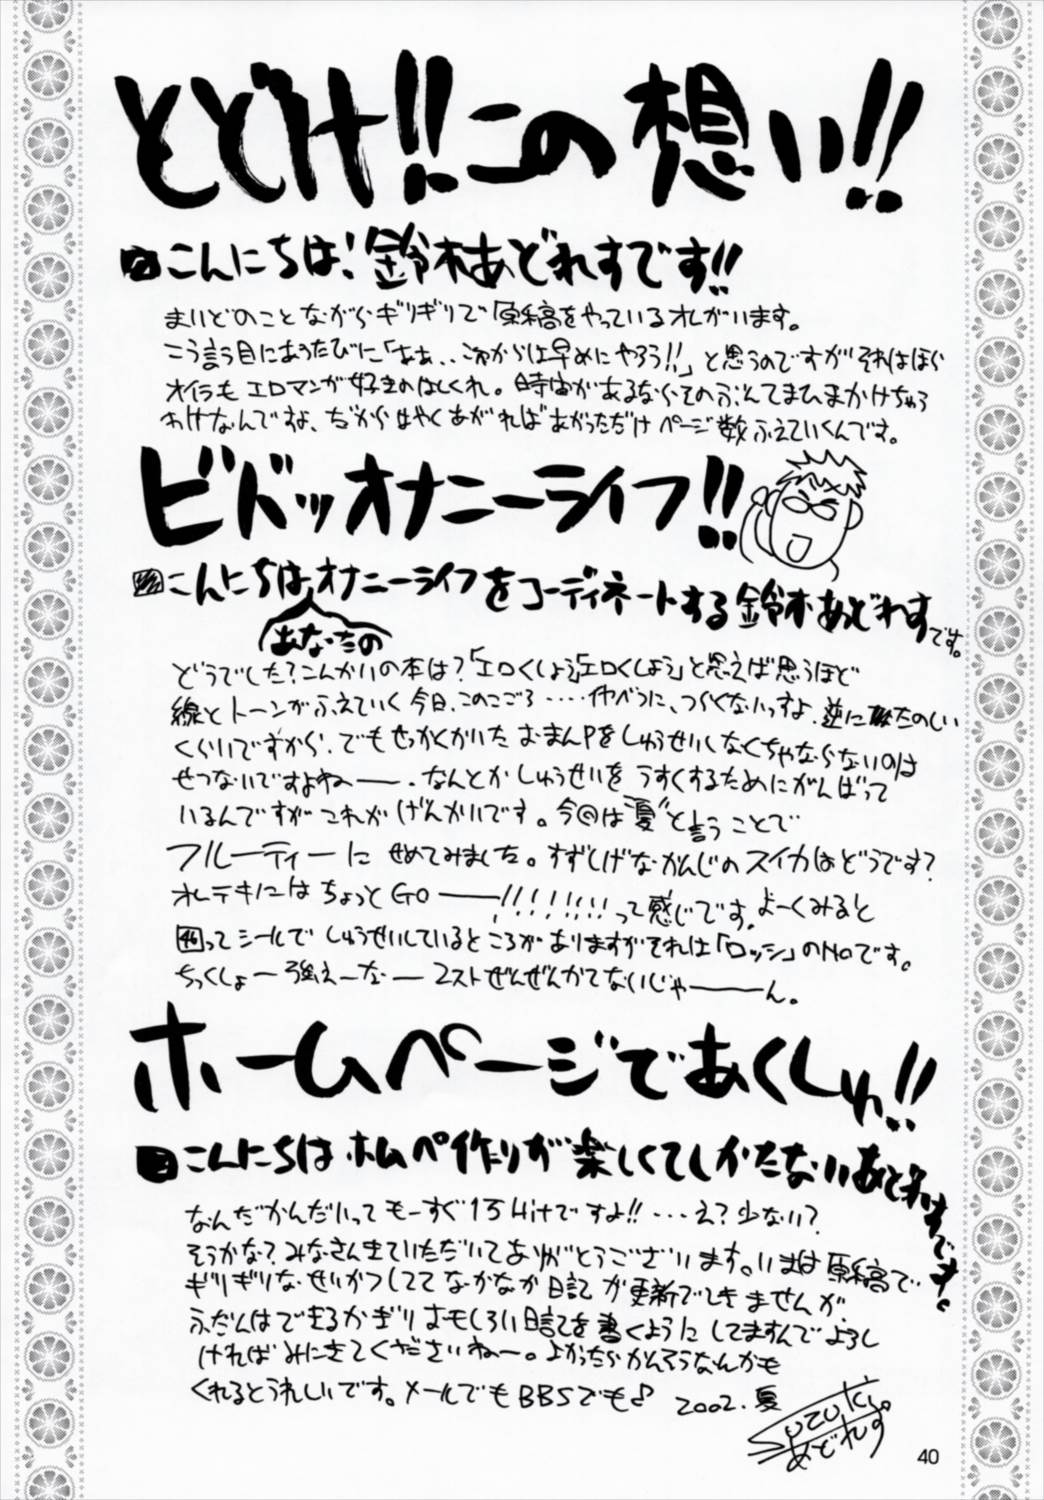 とどけ!!この想い!!
こんにちは!鈴木あどれすです!!
まいどのことながらギリギリで原稿をやっているオレがいます。
こう言う目にあうたびに「あぁ、、これからは早めにやろう!!」と思うのですがそれはほら
オイラもエロマンガ好きのはしくれ。時間があるならそのぶんてまひまかけちゃう
わけなんですよ、だからはやくあがればあがっただけページ数ふえていくんです。
ビバッオナニーライフ!!
こんにちは オナニーライフをコーディネートする鈴木あどれすです。
あなたの
どうでした?こんかいの本は?「エロくしよう」「エロくしよう」と思えば思うほど
線とトーンがふえていく今日、このごろ……イヤべつに、つらくないっすよ、逆にたのしい
くらいですから、でもせっかくかいたおまんPをしゅうせいしなくちゃならないのは
せつないですよねー、なんとかしゅうせいをうすくするためにがんばって
いるんですがこれがげんかいです。今回は"夏"と言うことで
フルーティーにせめてみました。すずしげなかんじのスイカはどうです?
オレテキにはちょっとGOー!!!!!!!って感じです。よーくみると
46ってシールでしゅうせいしているところがありますがそれは「ロッシ」のNoです。
ちっくしょー強えーなー 2ストぜんぜんかてないじゃーーん。
ホームページであくしゅ!!
こんにちはホムペ作りが楽しくてしかたないあどれすです。
なんだかんだいってもーすぐ1万Hitですよ!!…え?少ない?
そうかな?みなさんきていただいてありがとうございます。いまは原稿で
ギリギリなせいかつしててなかなか日記が更新できませんが
ふだんはできるかぎりおもしろい日記を書くようにしてますんでよろし
ければみにきてくださいねー。よかったらかんそうなんかも
くれるとうれしいです。メールでもBBSでも♪ 2002.夏
Suzuki
あどれす
40